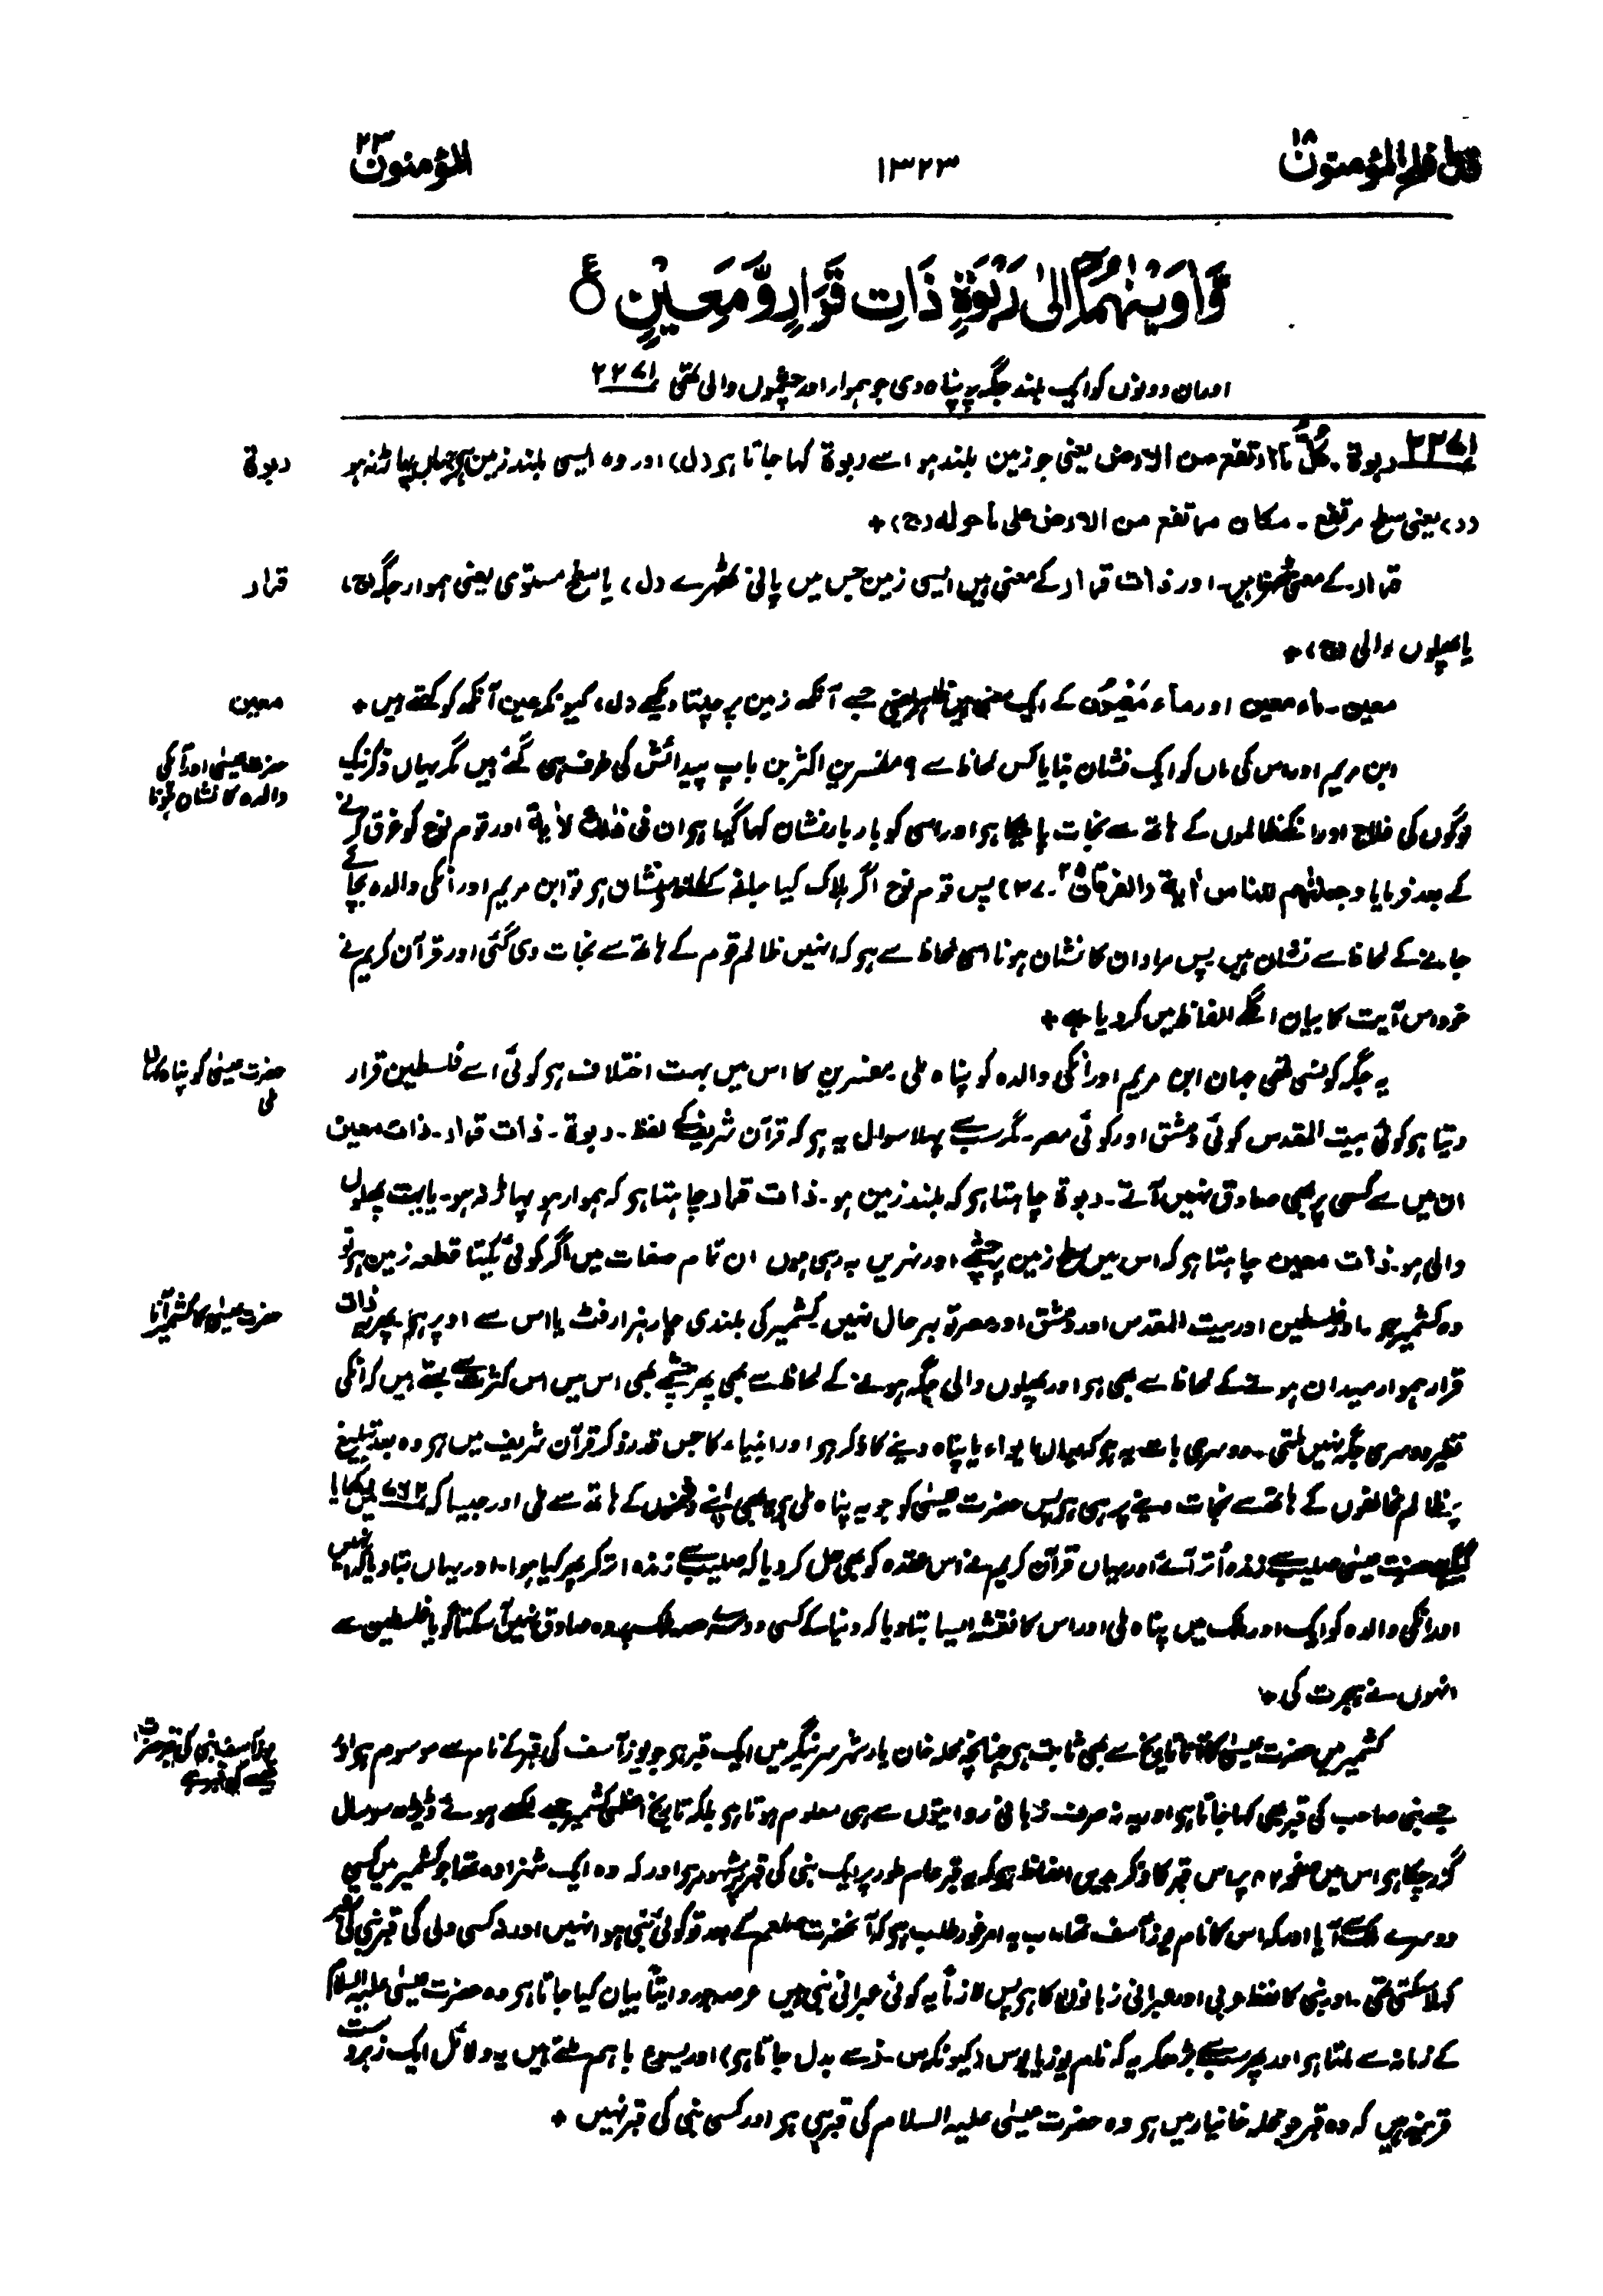 قد افلح المؤمنون ۱۸
۱۳۲۳
المؤمنون ۲۳
وَّاٰوَيْنٰهُمَاۤ اِلٰى رَبْوَةٍ ذَاتِ قَرَارٍ وَّمَعِيْنٍ ۝ ع
اور ان دونوں کو ایک بلند جگہ پر پناہ دی جو ہموار اور چشموں والی تھی ۲۲۷۱
۲۲۷۱ ربوة ۔ کلّ ما ارتفع من الارض یعنی جو زمین بلند ہو اسے ربوة کہا جاتا ہو (ل) اور وہ ایسی بلند زمین ہو جہاں پہاڑ نہ ہو
ربوة
(د) یعنی سطح مرتفع ۔ مکان مرتفع من الارض علی ما حوله (ج) +
قرار کے معنی ٹھہرنا ہیں۔ اور ذات قرار کے معنی ہیں ایسی زمین جس میں پانی ٹھہرے (ل) ، یا سطح مستوی یعنی ہموار جگہ (ج) ،
قرار
یا پھلوں والی (ج) +
معین ۔ ماء معین اور ماء مَعْیُون کے ایک معنی ہیں ظاہر یعنی جسے آنکھ زمین پر چلتا دیکھے (ل) ، کیونکہ عین آنکھ کو کہتے ہیں +
معین
ابن مریم اور اس کی ماں کو ایک نشان بنایا کس لحاظ سے ؟ مفسرین اکثر بن باپ پیدائش کی طرف ہی گئے ہیں مگر یہاں ذکر نیک
حضرت عیسیٰ اور آنکی
والدہ کا نشان ہونا
لوگوں کی فلاح اور انکے ظالموں کے ہاتھ سے نجات پانے کا ہو اور اسی کو بار بار نشان کہا گیا ہو ان فی ذلك لاٰیة اور قوم نوح کو غرق کرنے
کے بعد فرمایا وجعلنٰهم للناس اٰیة (الفرقان ۔ ۳۷) پس قوم نوح اگر ہلاک کیا جانے کے لحاظ سے نشان ہو تو ابن مریم اور انکی والدہ بچائے
جانے کے لحاظ سے نشان ہیں پس مراد ان کا نشان ہونا اسی لحاظ سے ہو کہ انہیں ظالم قوم کے ہاتھ سے نجات دی گئی اور قرآن کریم نے
خود اس آیت کا بیان اگلے الفاظ میں کر دیا ہے +
یہ جگہ کونسی تھی جہان ابن مریم اور انکی والدہ کو پناہ ملی ۔ مفسرین کا اس میں بہت اختلاف ہو کوئی اسے فلسطین قرار
حضرت عیسیٰ کو پناہ کہاں
ملی
دیتا ہو کوئی بیت المقدس کوئی دمشق اور کوئی مصر ۔ مگر سب سے پہلا سوال یہ ہو کہ قرآن شریف کے لفظ ۔ ربوة ۔ ذات قرار ۔ ذات معین
ان میں سے کسی پر بھی صادق نہیں آتے ۔ ربوة چاہتا ہو کہ بلند زمین ہو ۔ ذات قرار چاہتا ہو کہ ہموار ہو پہاڑ نہ ہو ۔ یا بہت پھلوں
والی ہو ۔ ذات معین چاہتا ہو کہ اس میں سطح زمین پر چشمے اور نہریں بہ رہی ہوں ان تمام صفات میں اگر کوئی یکتا قطعہ زمین ہو تو
وہ کشمیر ہو ۔ اور فلسطین اور بیت المقدس اور دمشق اور مصر تو بہر حال نہیں ۔ کشمیر کی بلندی چار ہزار فٹ یا اس سے اوپر ہو ۔ پھر یہ ذات
حضرت عیسیٰ کا کشمیر آنا
قرار ہموار میدان ہونے کے لحاظ سے بھی ہو اور پھلوں والی جگہ ہونے کے لحاظ سے بھی پھر چشمے بھی اس میں اس کثرت سے بہتے ہیں کہ انکی
نظیر دوسری جگہ نہیں ملتی ۔ دوسری بات یہ ہو کہ یہاں ایواء یا پناہ دینے کا ذکر ہو اور انبیاء کا جس قدر ذکر قرآن شریف میں ہو وہ بعد تبلیغ
پر ظالم مخالفوں کے ہاتھ سے نجات دینے پر ہی ہو پس حضرت عیسیٰ کو جو یہ پناہ ملی یہ بھی اپنے دشمنوں کے ہاتھ سے ملی اور جیسا کہ میں لکھا
گیا ہو حضرت عیسیٰ صلیب سے زندہ اُتر آئے اور یہاں قرآن کریم نے اس عقدہ کو بھی حل کر دیا کہ صلیب سے زندہ اتر کر پھر کیا ہوا ۔ اور یہاں بتا دیا کہ انہیں
اور انکی والدہ کو ایک اور ملک میں پناہ ملی اور اس کا نقشہ ایسا بتا دیا کہ دنیا کے کسی دوسرے حصہ ملک پر وہ صادق نہیں آ سکتا گویا فلسطین سے
انہوں نے ہجرت کی +
کشمیر میں حضرت عیسیٰ کا آنا تاریخ سے بھی ثابت ہو چنانچہ محلہ خان یار شہر سرینگر میں ایک قبر ہو جو یوز آسف کی قبر کے نام سے موسوم ہو اور
یوز آسف نبی کی قبر حضرت
عیسے کی قبر ہے
جسے نبی صاحب کی قبر بھی کہا جاتا ہو اور یہ نہ صرف زبانی روایتوں سے ہی معلوم ہوتا ہو بلکہ تاریخ اعظمی کشمیر جسے لکھے ہوئے ڈیڑھ سو سال
گزر چکا ہو اس میں صفحہ ۸۲ پر اس قبر کا ذکر بدیں الفاظ ہو کہ یہ قبر عام طور پر ایک نبی کی قبر مشہور ہو اور کہ وہ ایک شہزادہ تھا جو کشمیر میں کسی
دوسرے ملک سے آیا اور کہ اس کا نام یوز آسف تھا ۔ اب یہ امر غور طلب ہو کہ آنحضرت صلعم کے بعد تو کوئی نبی ہوا نہیں اور نہ کسی ولی کی قبر نبی کی قبر
کہلا سکتی تھی ۔ اور نبی کا لفظ عربی اور عبرانی زبانوں کا ہو پس لازماً یہ کوئی عبرانی نبی ہیں عرصہ جو روایتاً بیان کیا جاتا ہو وہ حضرت عیسیٰ علیہ السلام
کے زمانہ سے ملتا ہو اور پھر سب سے بڑھکر یہ کہ نام یوز یا یوس (کیونکہ س ۔ ز سے بدل جاتا ہو) اور یسوع باہم ملتے ہیں یہ دلائل ایک زبردست
قرینہ ہیں کہ وہ قبر جو محلہ خانیار میں ہو وہ حضرت عیسیٰ علیہ السلام کی قبر ہی ہو اور کسی نبی کی قبر نہیں +